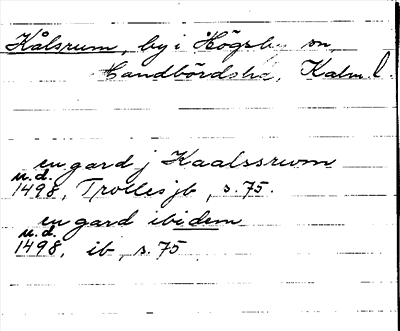 Kålsrum, by i Högsby sn,
Handbördshd, Kalm. l.
en gard j Kaalssrwm
u.d.
1498, Trolles jb, s. 75.
en gard ibidem
u.d.
1498, ib, s. 75